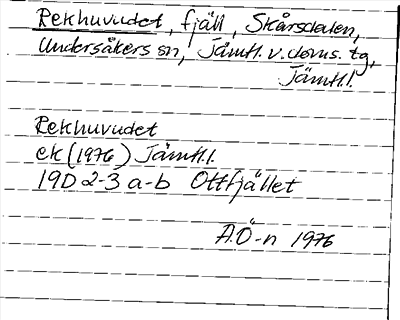 Rekhuvudet, fjäll, Skårsdalen,
Undersåkers sn, Jämtl. v. doms. tg,
Jämtl. l.
Rekhuvudet
ek (1976) Jämtl. l.
19D 2-3 a-b Ottfjället
A.Ö-n 1976